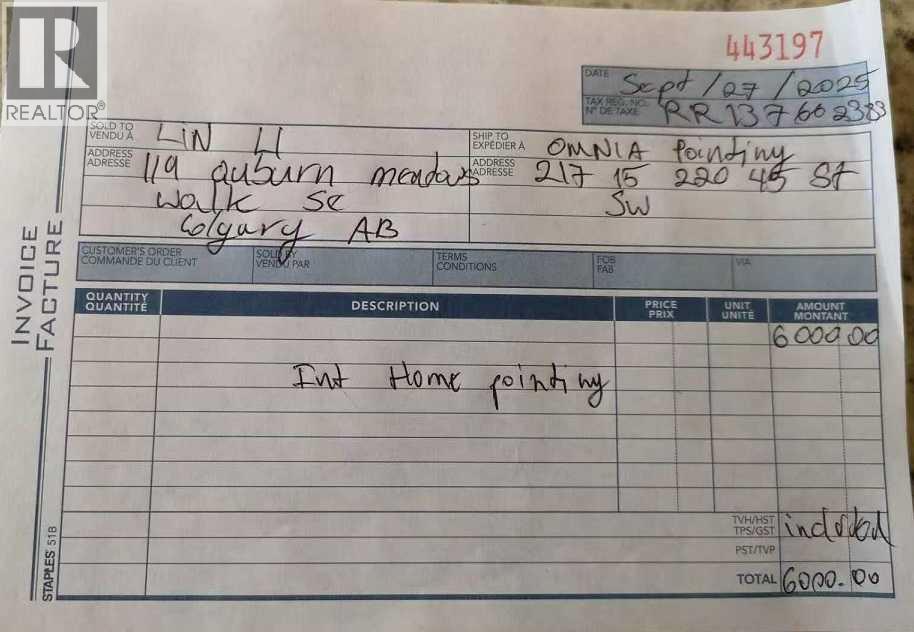 R
REALTOR®
443197
DATE Sept/27/2025
TAX REG. NO.
N° DE TAXE RR 137602383
SOLD TO
VENDU À LiN LI
ADDRESS
ADRESSE 119 auburn meadows
walk SE
Calgary AB
SHIP TO
EXPÉDIER À OMNIA Painting
ADDRESS
ADRESSE 217 15 220 45 St
SW
INVOICE
FACTURE
CUSTOMER'S ORDER
COMMANDE DU CLIENT
SOLD BY
VENDU PAR
TERMS
CONDITIONS
FOB
FAB
VIA
QUANTITY
QUANTITÉ
DESCRIPTION
PRICE
PRIX
UNIT
UNITÉ
AMOUNT
MONTANT
6000.00
Int Home painting
TVH/HST
TPS/GST included
PST/TVP
TOTAL 6000.00
STAPLES 51B